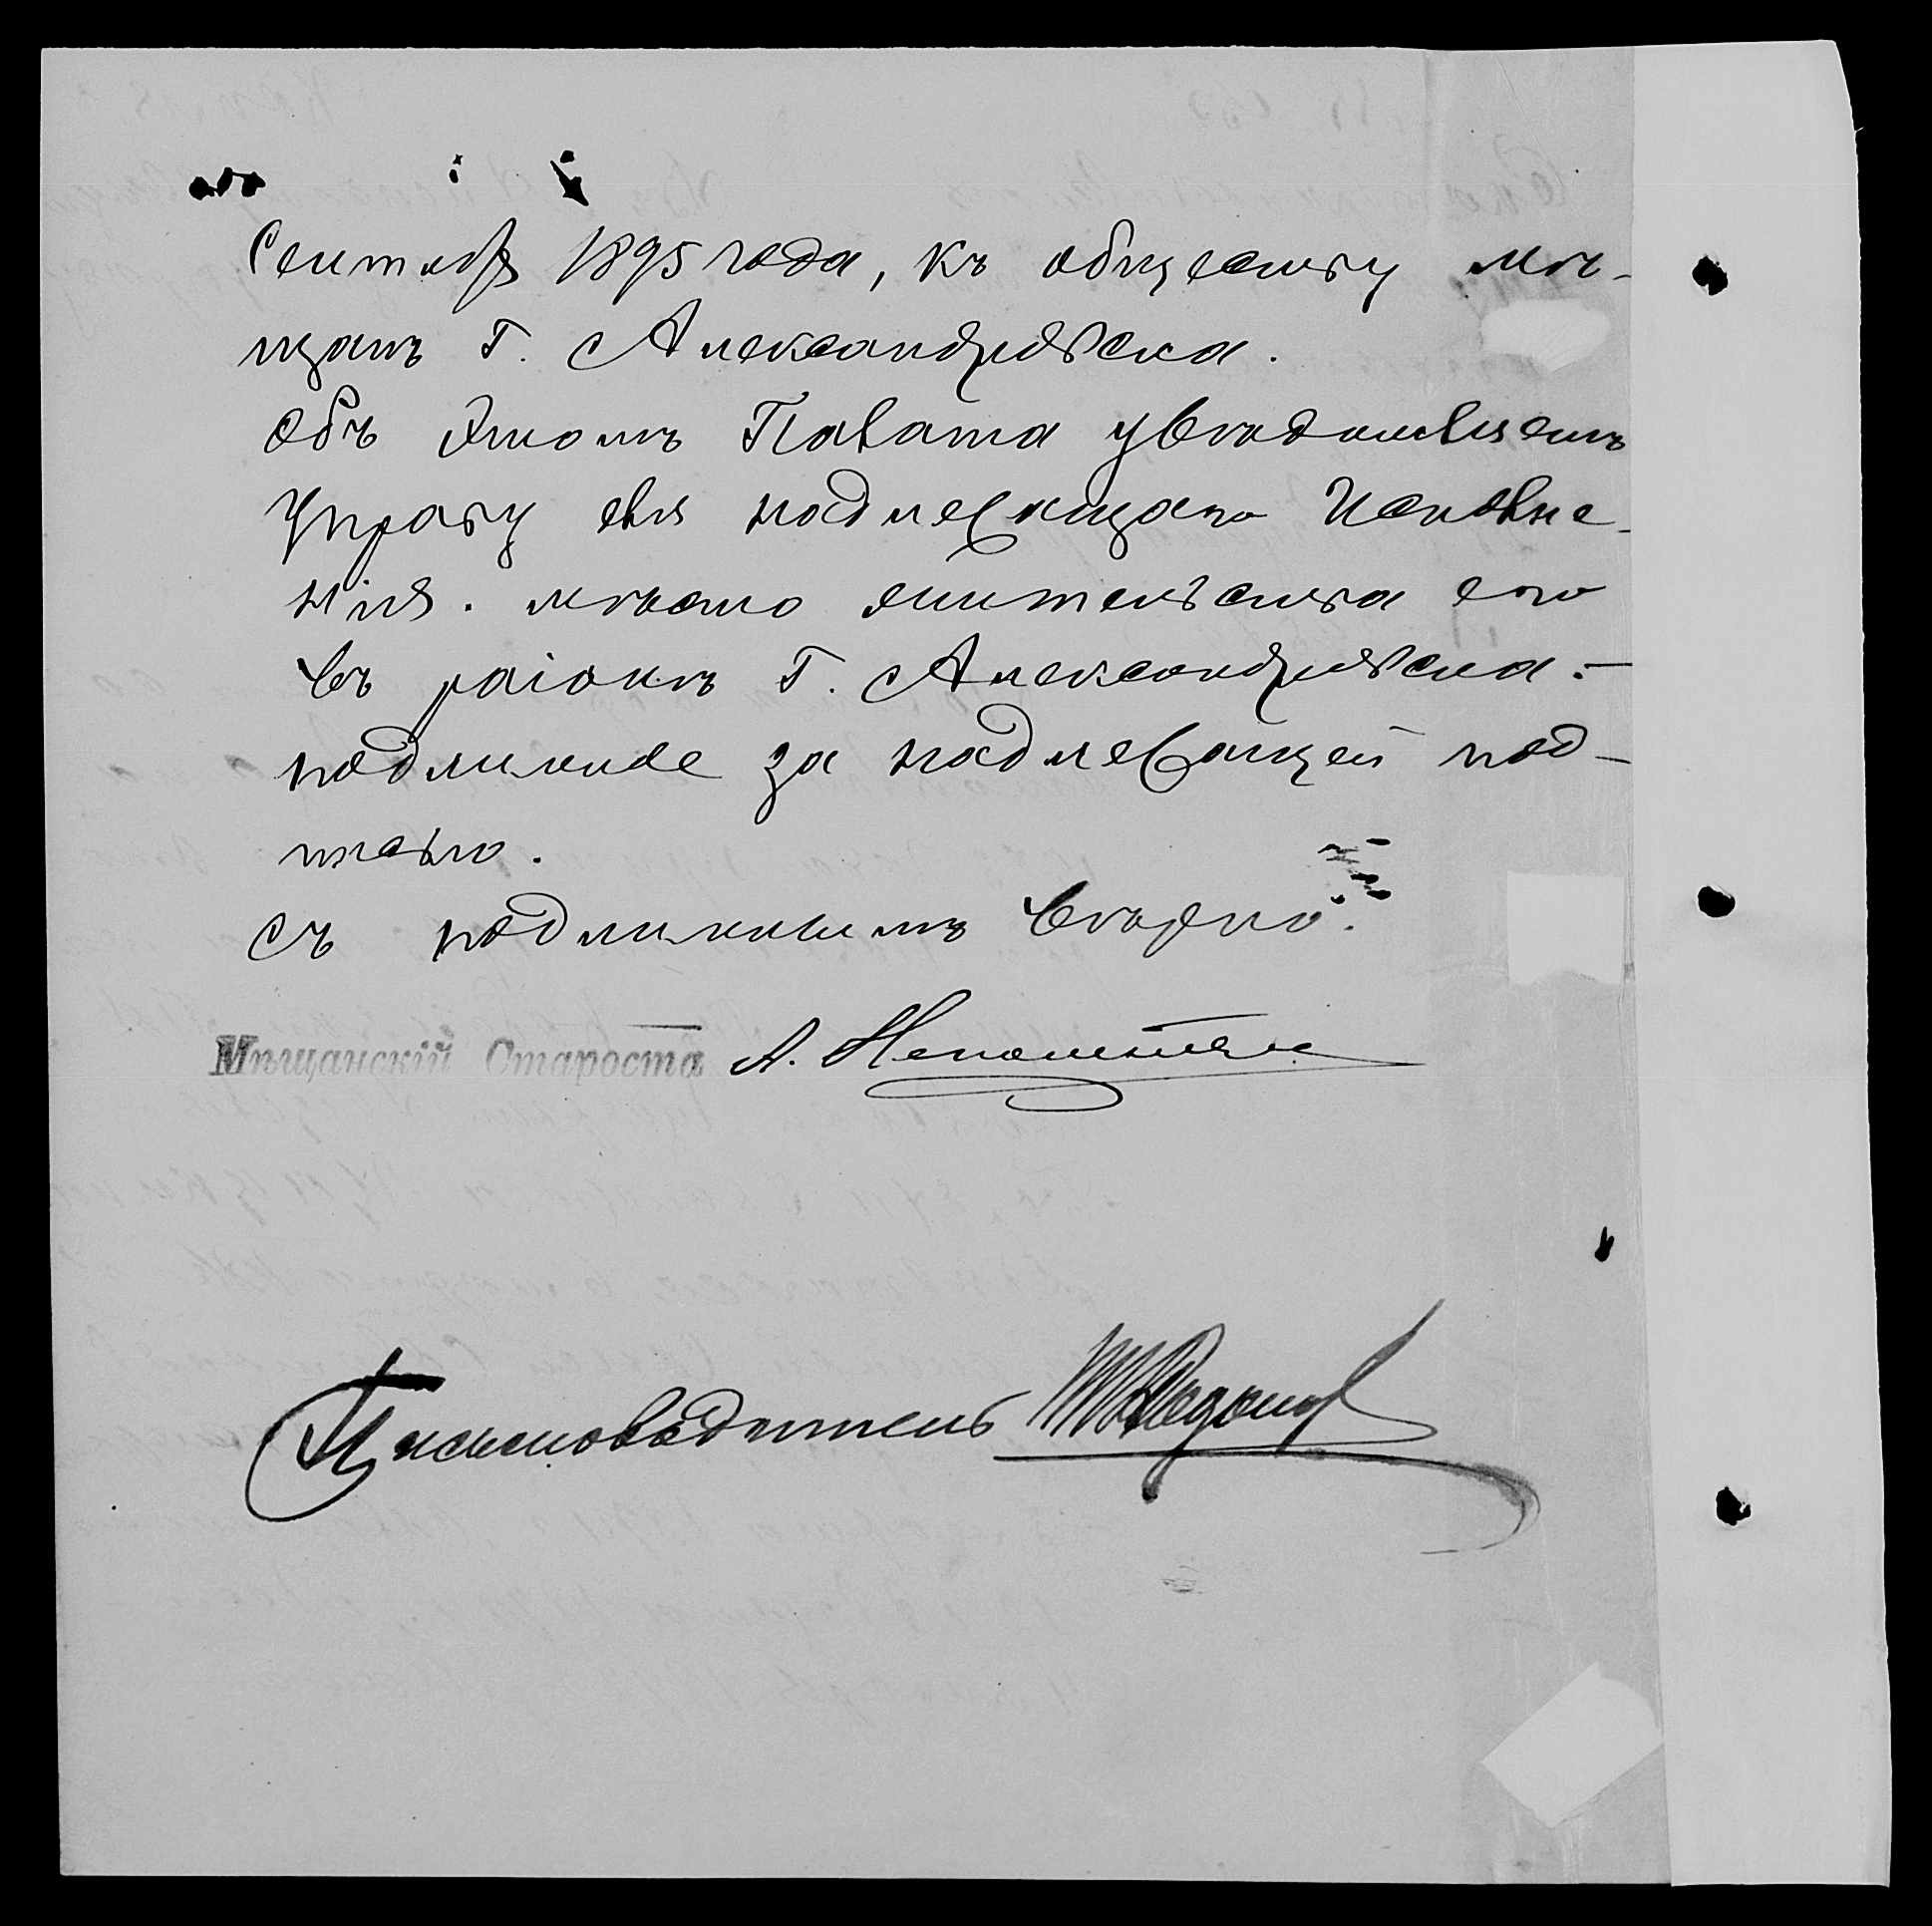 Сентября 1895 года, къ обществу мѣ-
щанъ г. Александровска.
Объ этомъ Палата увѣдомляетъ
Управу для надлежащаго исполне-
нія. мѣсто жительства его
въ раіонѣ г. Александровска.-
подлинное за надлежащей под-
писью.
съ подлиннымъ вѣрно.
Мѣщанскій Староста А.
Письмоводитель